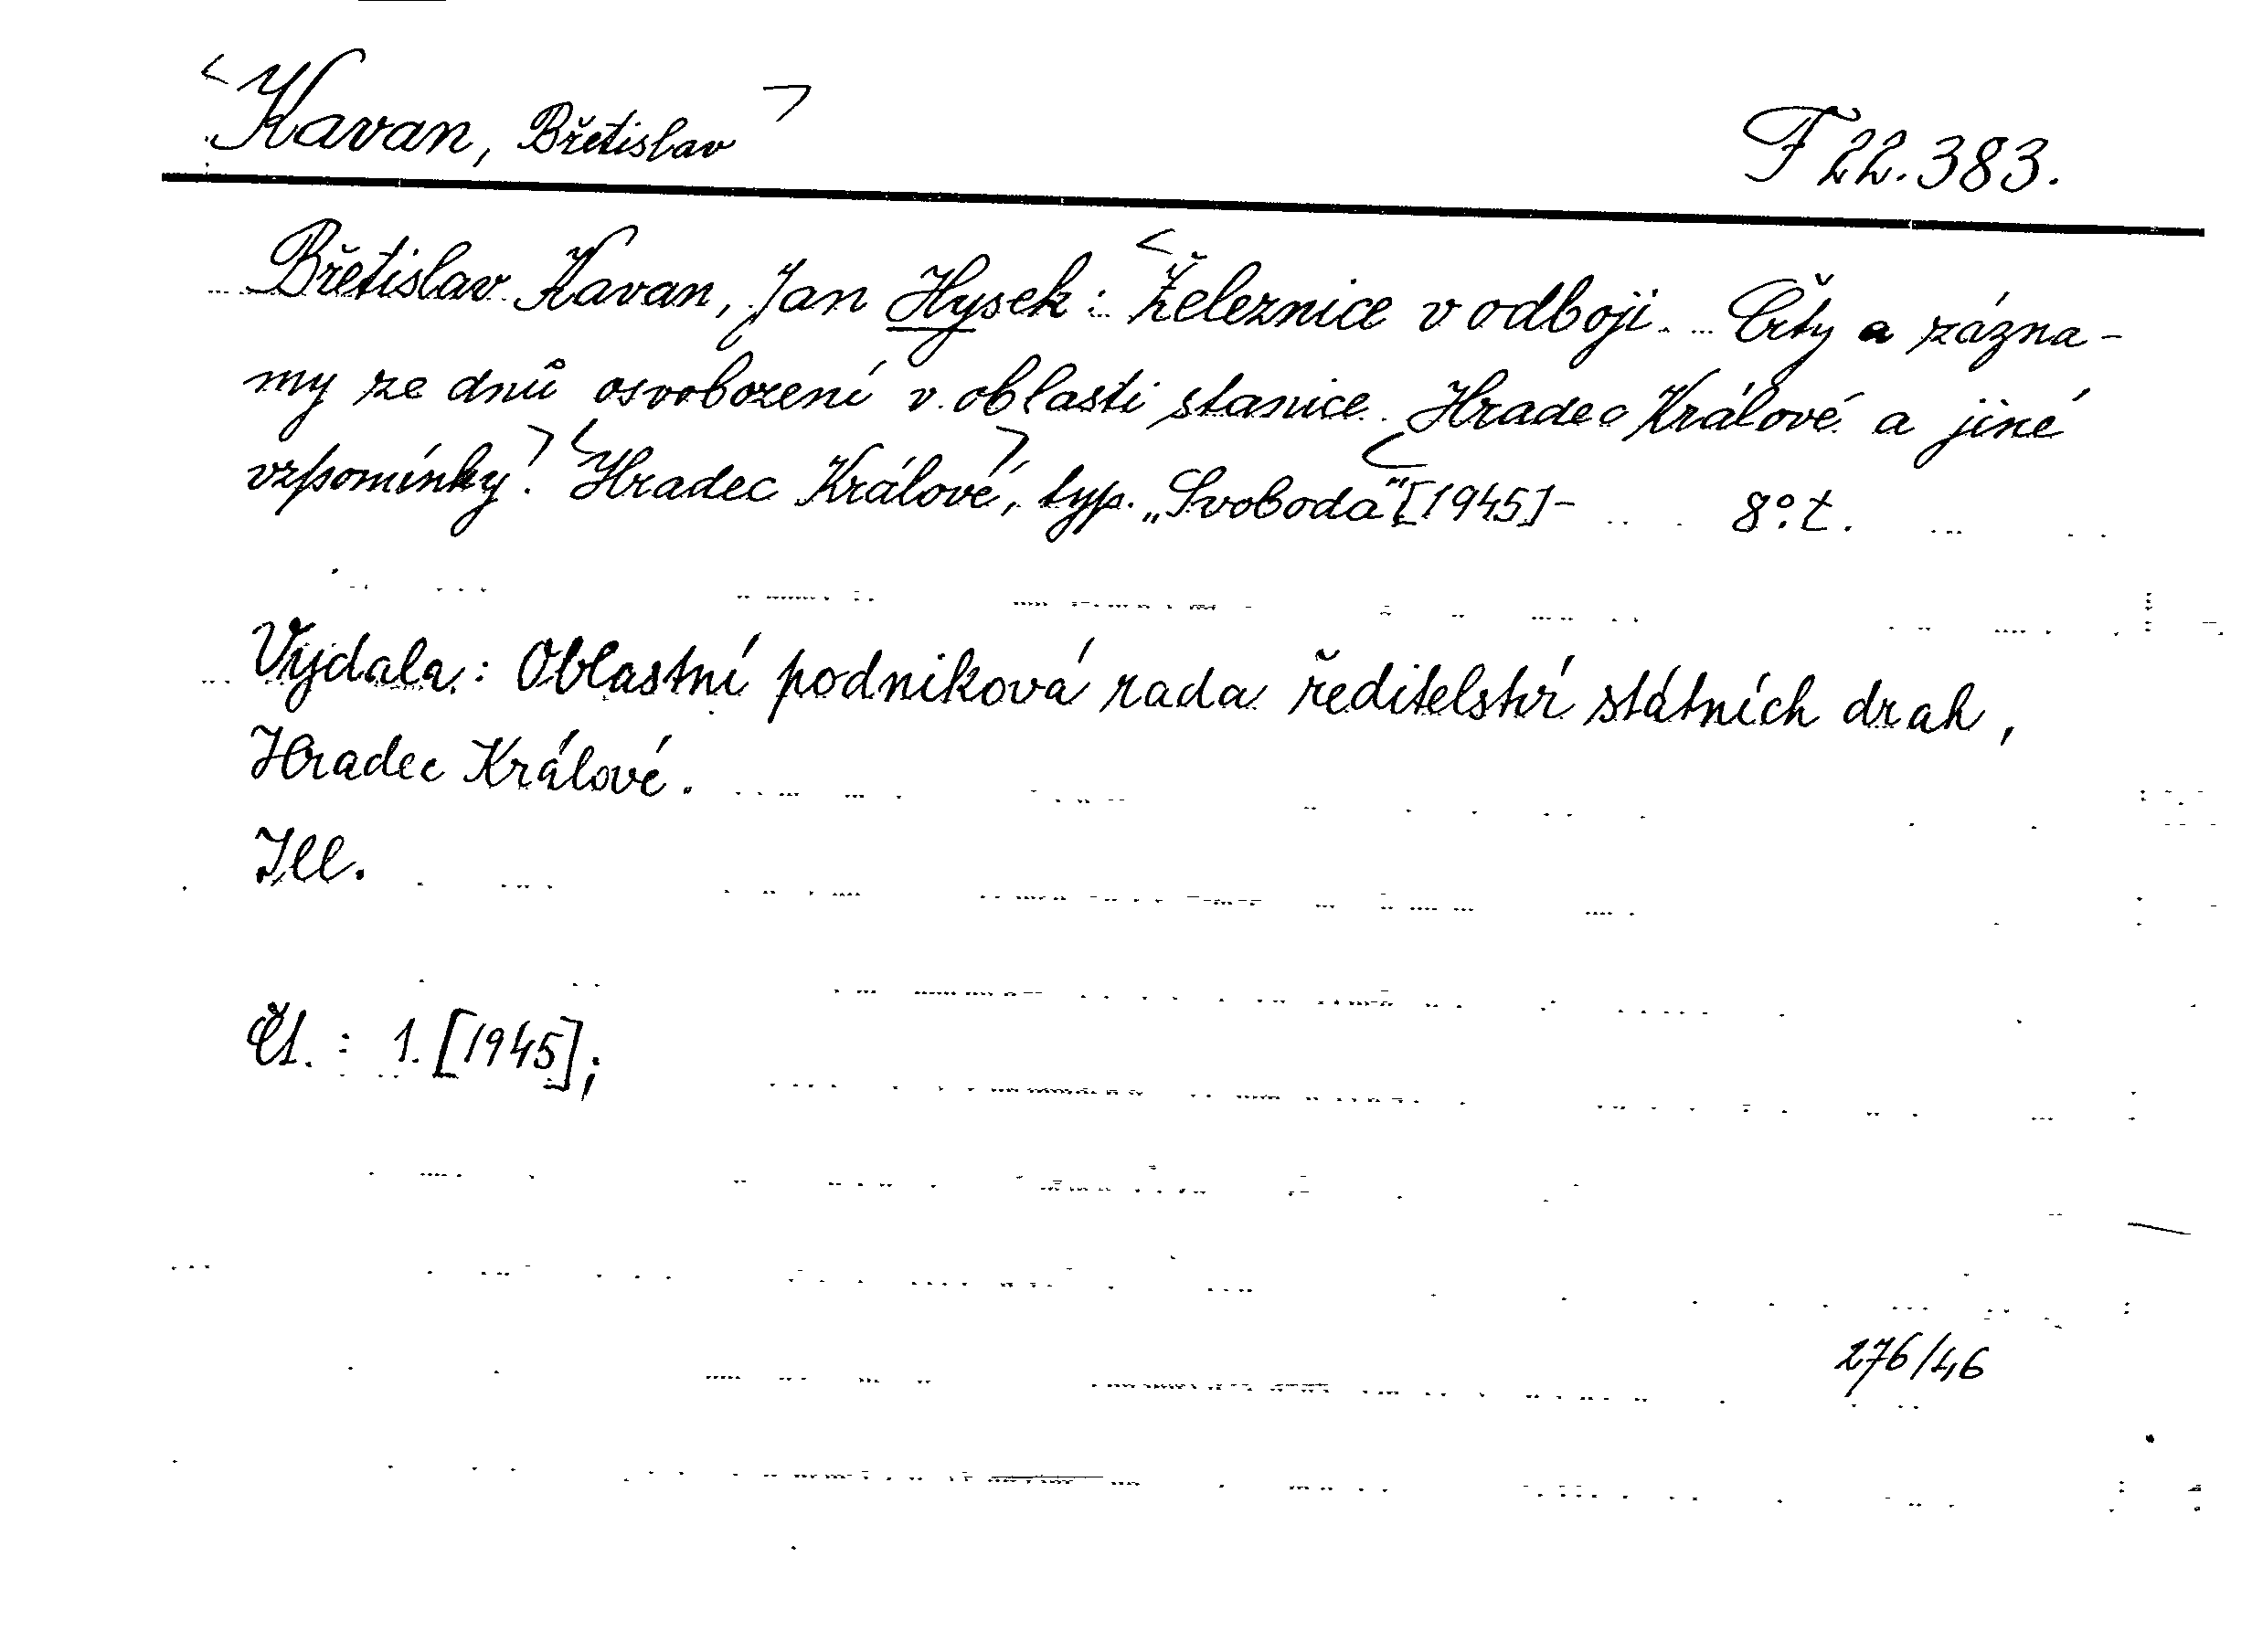 <Kavan, Břetislav>
F 22.383.
Břetislav Kavan, Jan Hysek: <Železnice v odboji. Črty a zázna-
my ze dnů osvobození v oblasti stanice Hradec Králové a jiné
vzpomínky>. <Hradec Králové>, typ. „Svoboda" <[1945]- 8°. t.
Vydala: Oblastní podniková rada ředitelství státních drah,
Hradec Králové.
Ill.
Čl.: 1. [1945];
276/46